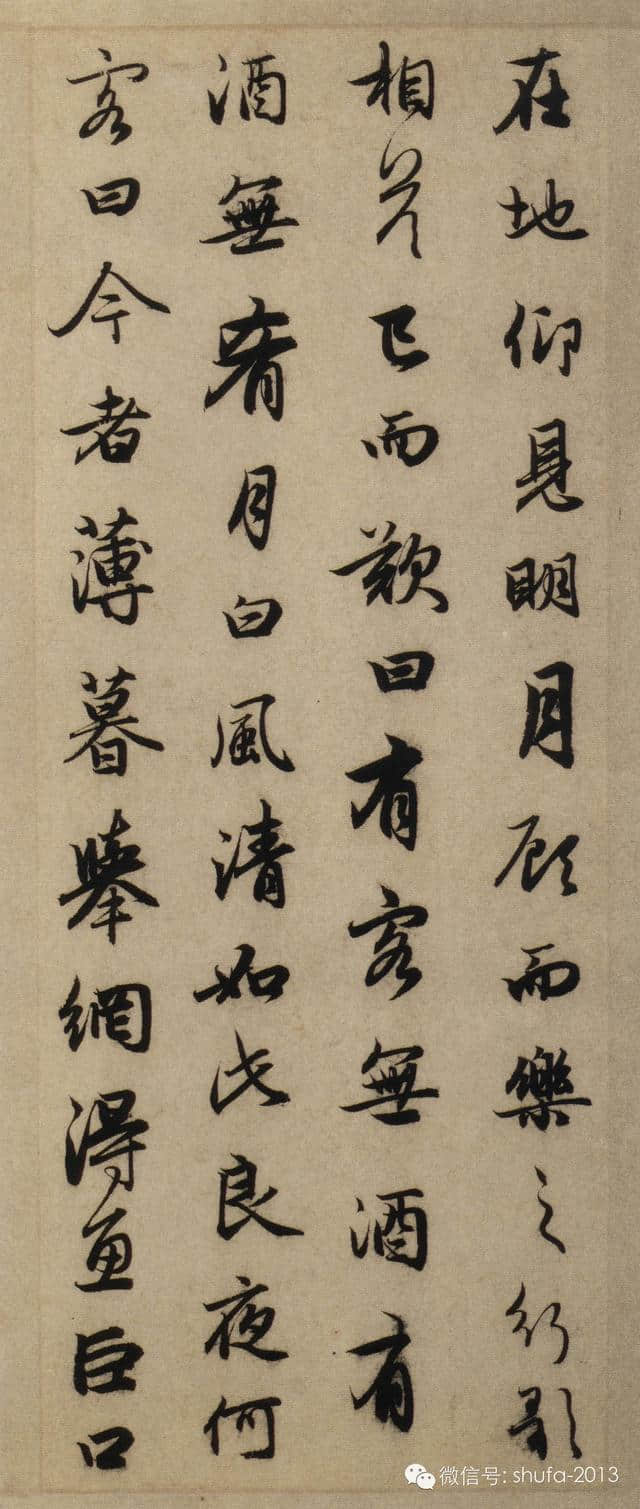 在地仰見明月顧而樂之行歌
相答已而歎曰有客無酒有
酒無肴月白風清如此良夜何
客曰今者薄暮舉網得魚巨口
微信号: shufa-2013